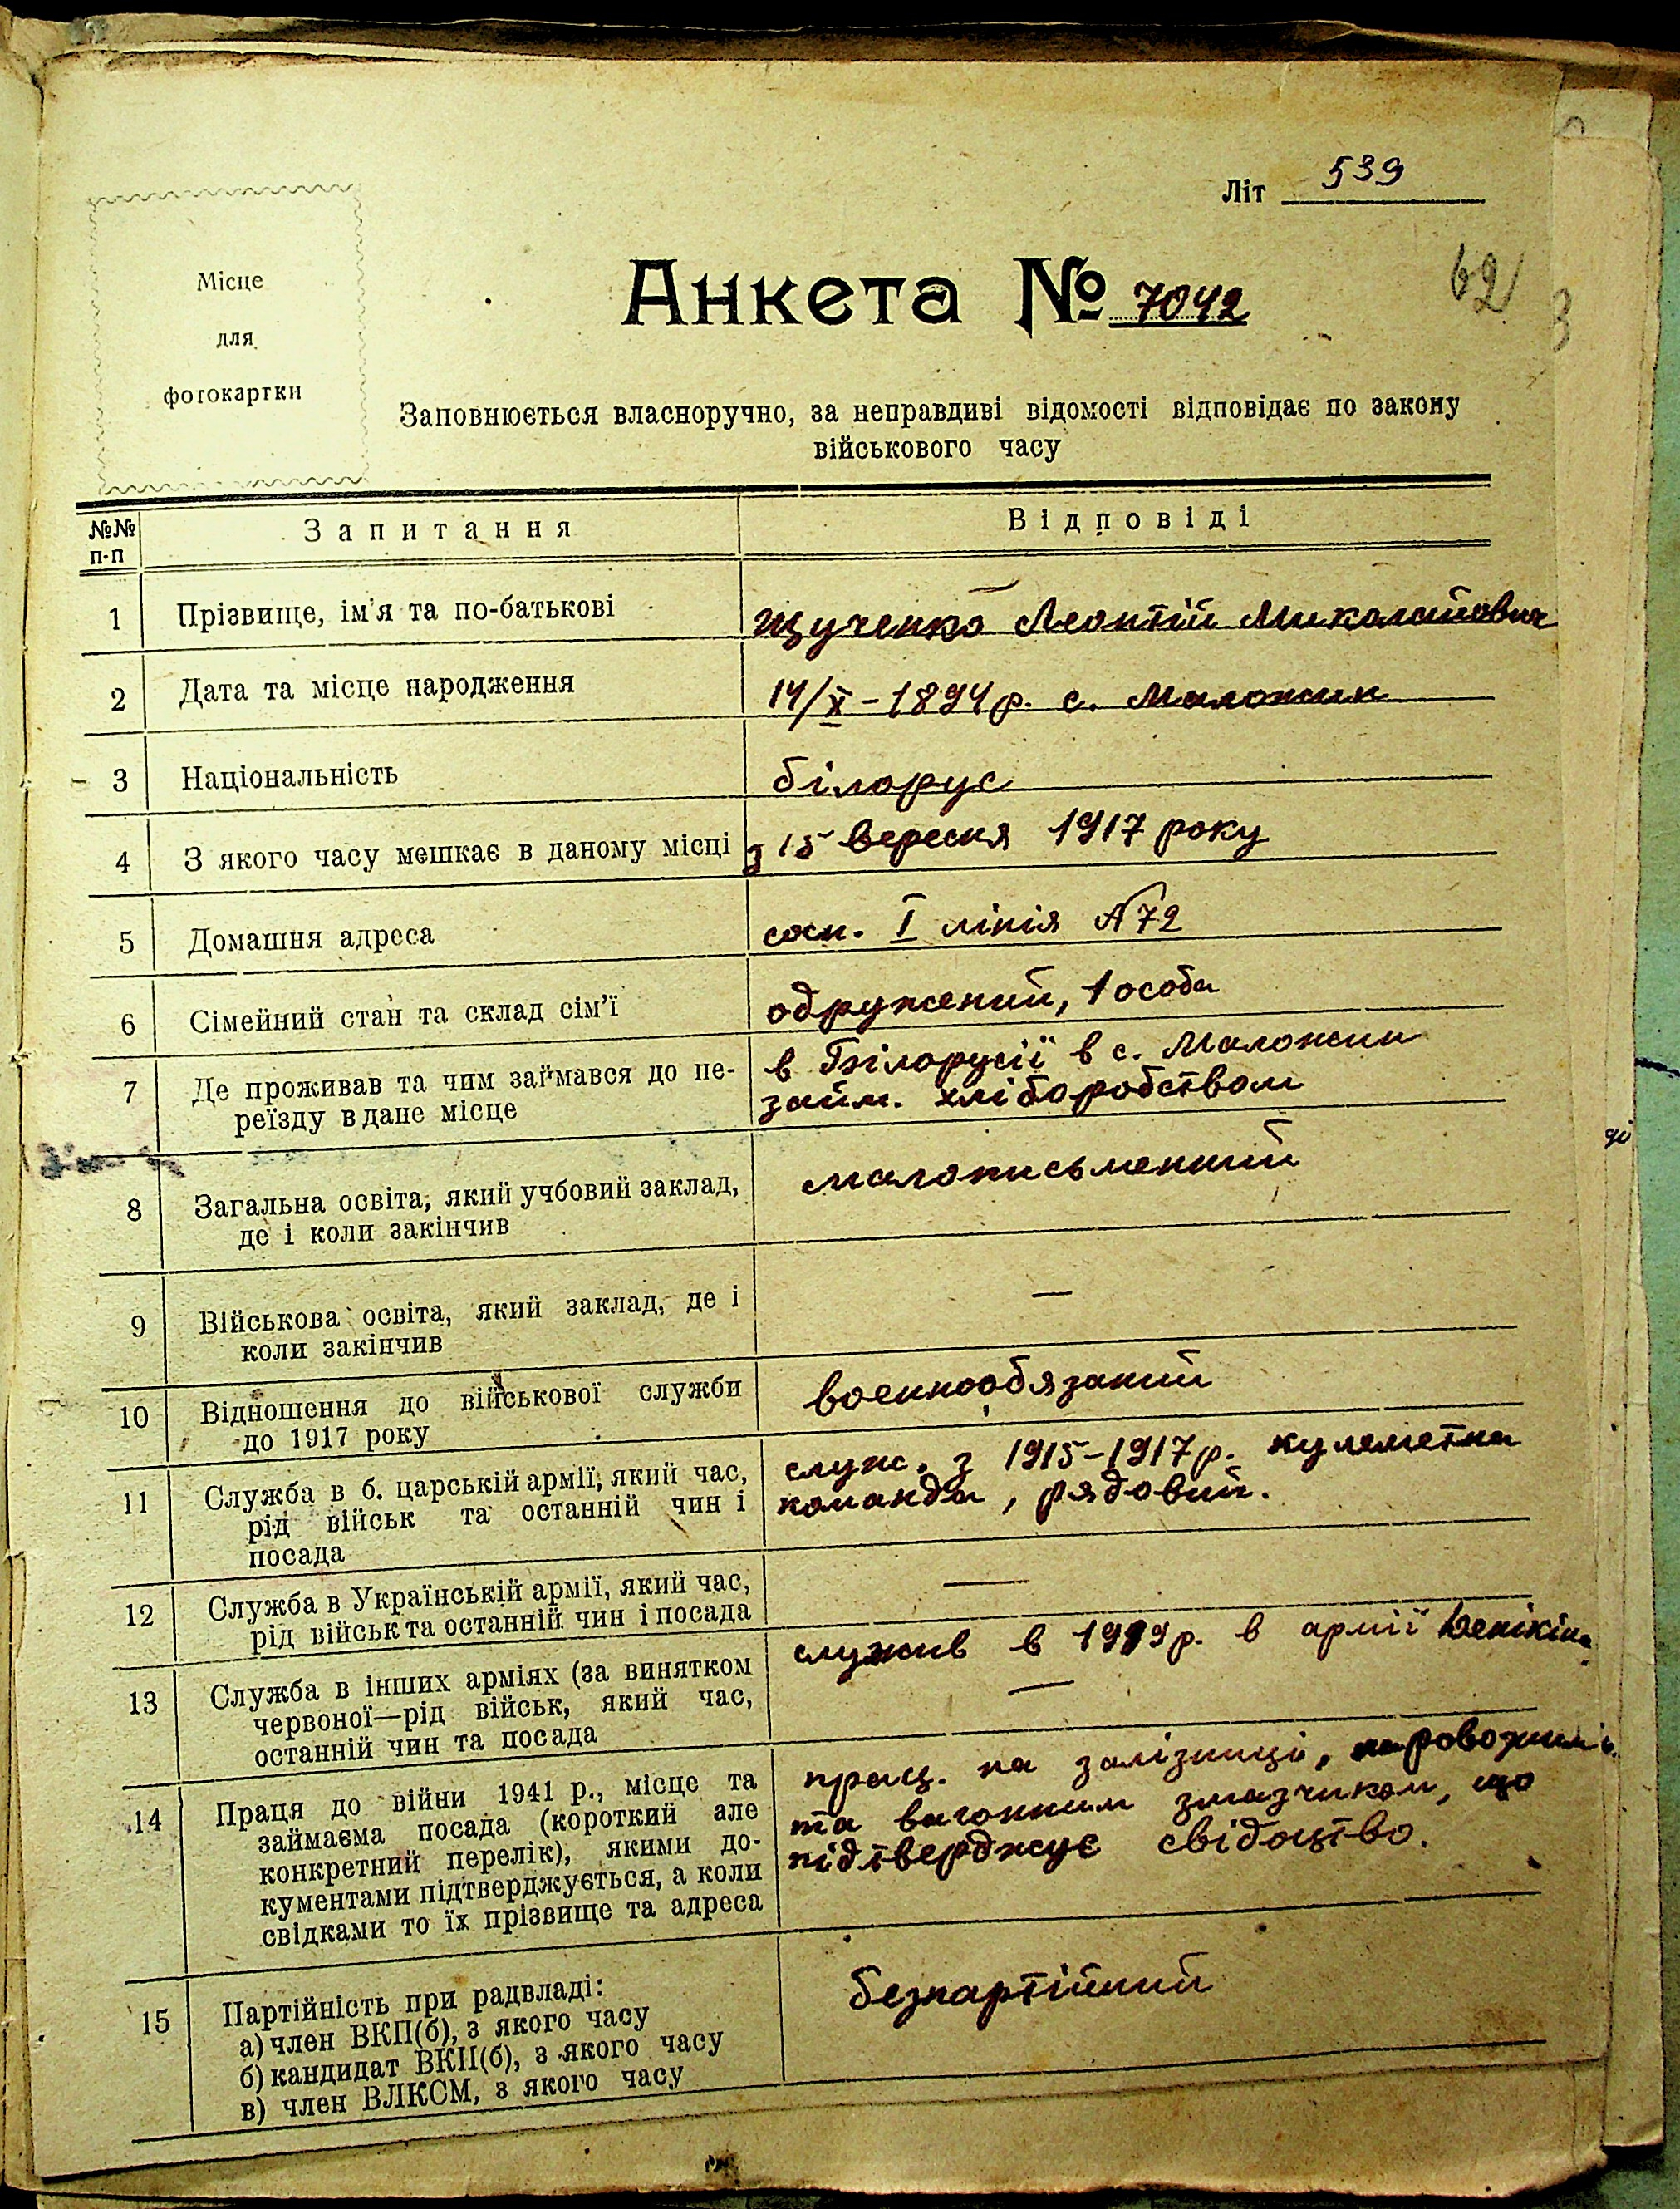 Літ 539
62
Місце
для
фотокартки
Анкета № 7042
Заповнюється власноручно, за неправдиві відомості відповідає по закону
військового часу
№№ п-п Запитання Відповіді
1 Прізвище, ім'я та по-батькові Щученко Леонтій Миколайович
2 Дата та місце народження 14/X - 1894 р. с. Маложин
3 Національність білорус
4 З якого часу мешкає в даному місці з 15 вересня 1917 року
5 Домашня адреса сосн. I лінія №72
6 Сімейний стан та склад сім'ї одружений, 1 особа
7 Де проживав та чим займався до пе-
реїзду в дане місце
в Білорусії в с. Маложин
займ. хліборобством
8 Загальна освіта, який учбовий заклад,
де і коли закінчив
малописьменний
9 Військова освіта, який заклад, де і
коли закінчив
—
10 Відношення до військової служби
до 1917 року
военнообязаний
11 Служба в б. царській армії, який час,
рід військ та останній чин і
посада
служ. з 1915-1917 р. кулеметна
команда, рядовий.
12 Служба в Українській армії, який час,
рід військ та останній чин і посада
—
13 Служба в інших арміях (за винятком
червоної—рід військ, який час,
останній чин та посада
служив в 1919 р. в армії Денікіна
—
14 Праця до війни 1941 р., місце та
займаєма посада (короткий але
конкретний перелік), якими до-
кументами підтверджується, а коли
свідками то їх прізвище та адреса
прац. на залізниці,
та вагонним змазчиком, що
підтверджує свідоцтво.
15 Партійність при радвладі:
а) член ВКП(б), з якого часу
б) кандидат ВКП(б), з якого часу
в) член ВЛКСМ, з якого часу
безпартійний